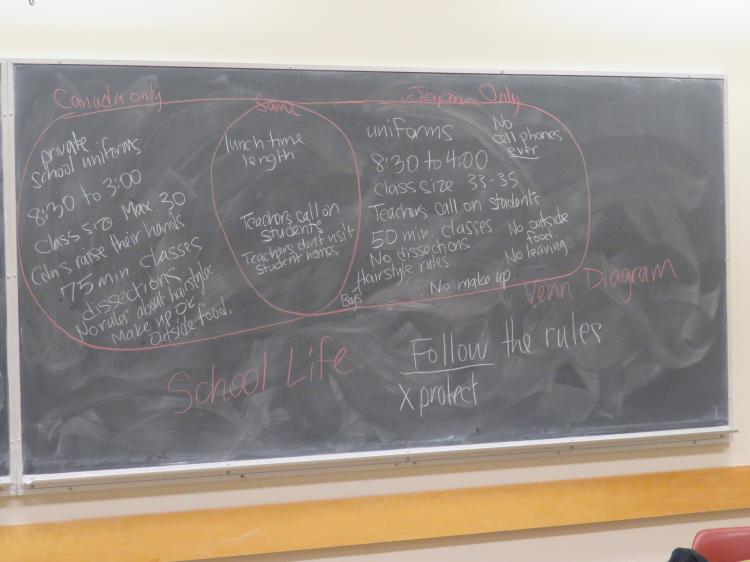 Canada only
Same
Japan Only
private
school uniforms
8:30 to 3:00
class size Max. 30
Cdn's raise their hands
75 min. classes
dissections
No rules about hairstyles
Make up OK
outside food.
lunch time
length
Teachers call on
students
Teachers don't visit
student homes
uniforms
8:30 to 4:00
class size: 33-35
Teachers call on students
50 min. classes
No dissections
Hairstyle rules
No make up
No
cell phones
ever
No outside
food
No leaving
Venn Diagram
School Life
Follow the rules
X protect